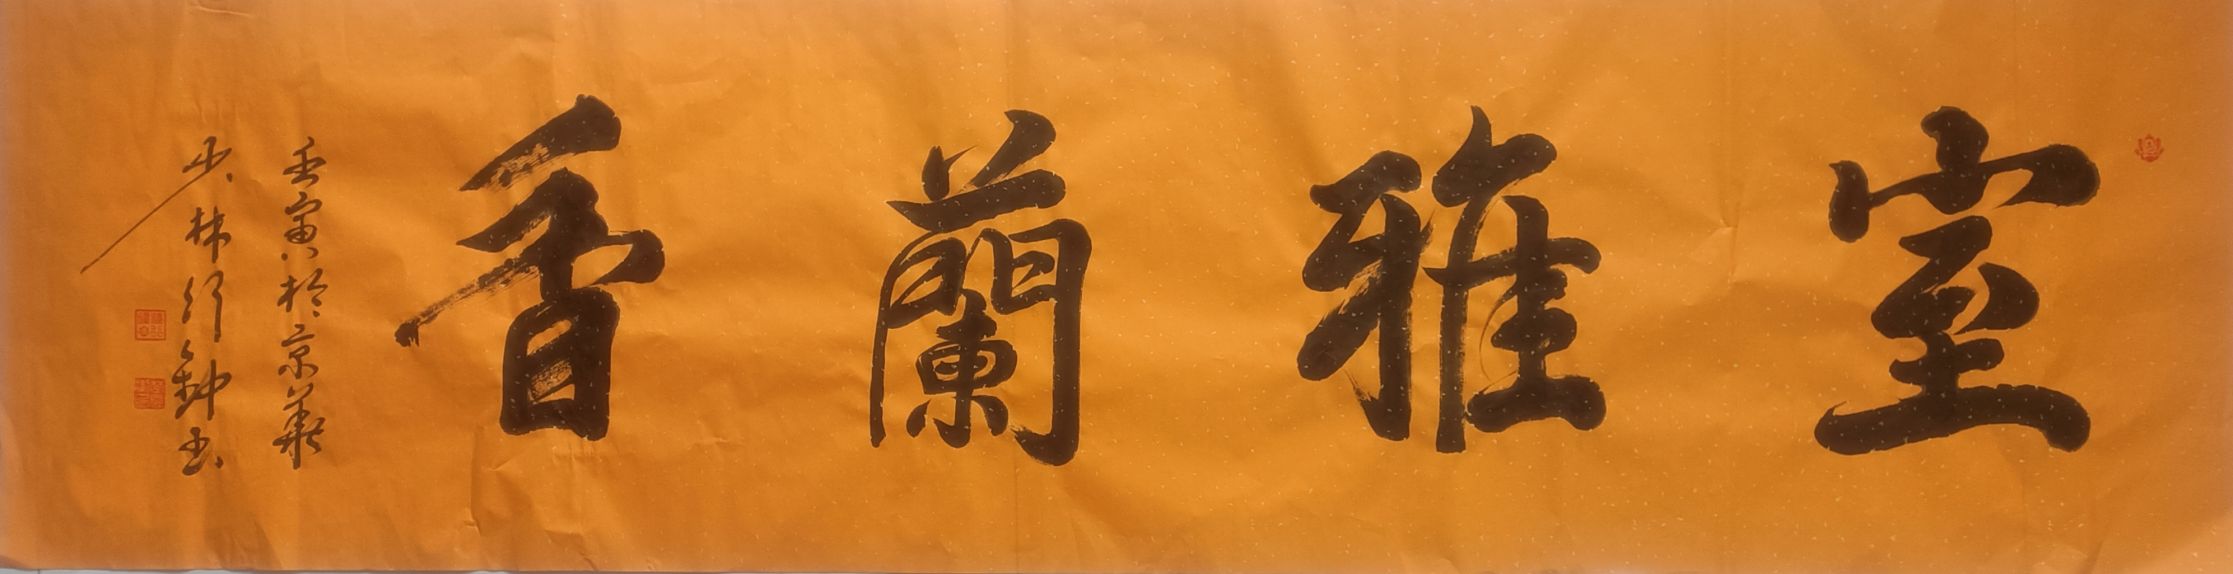 室雅蘭香
壬寅於京華
少林行鈡书